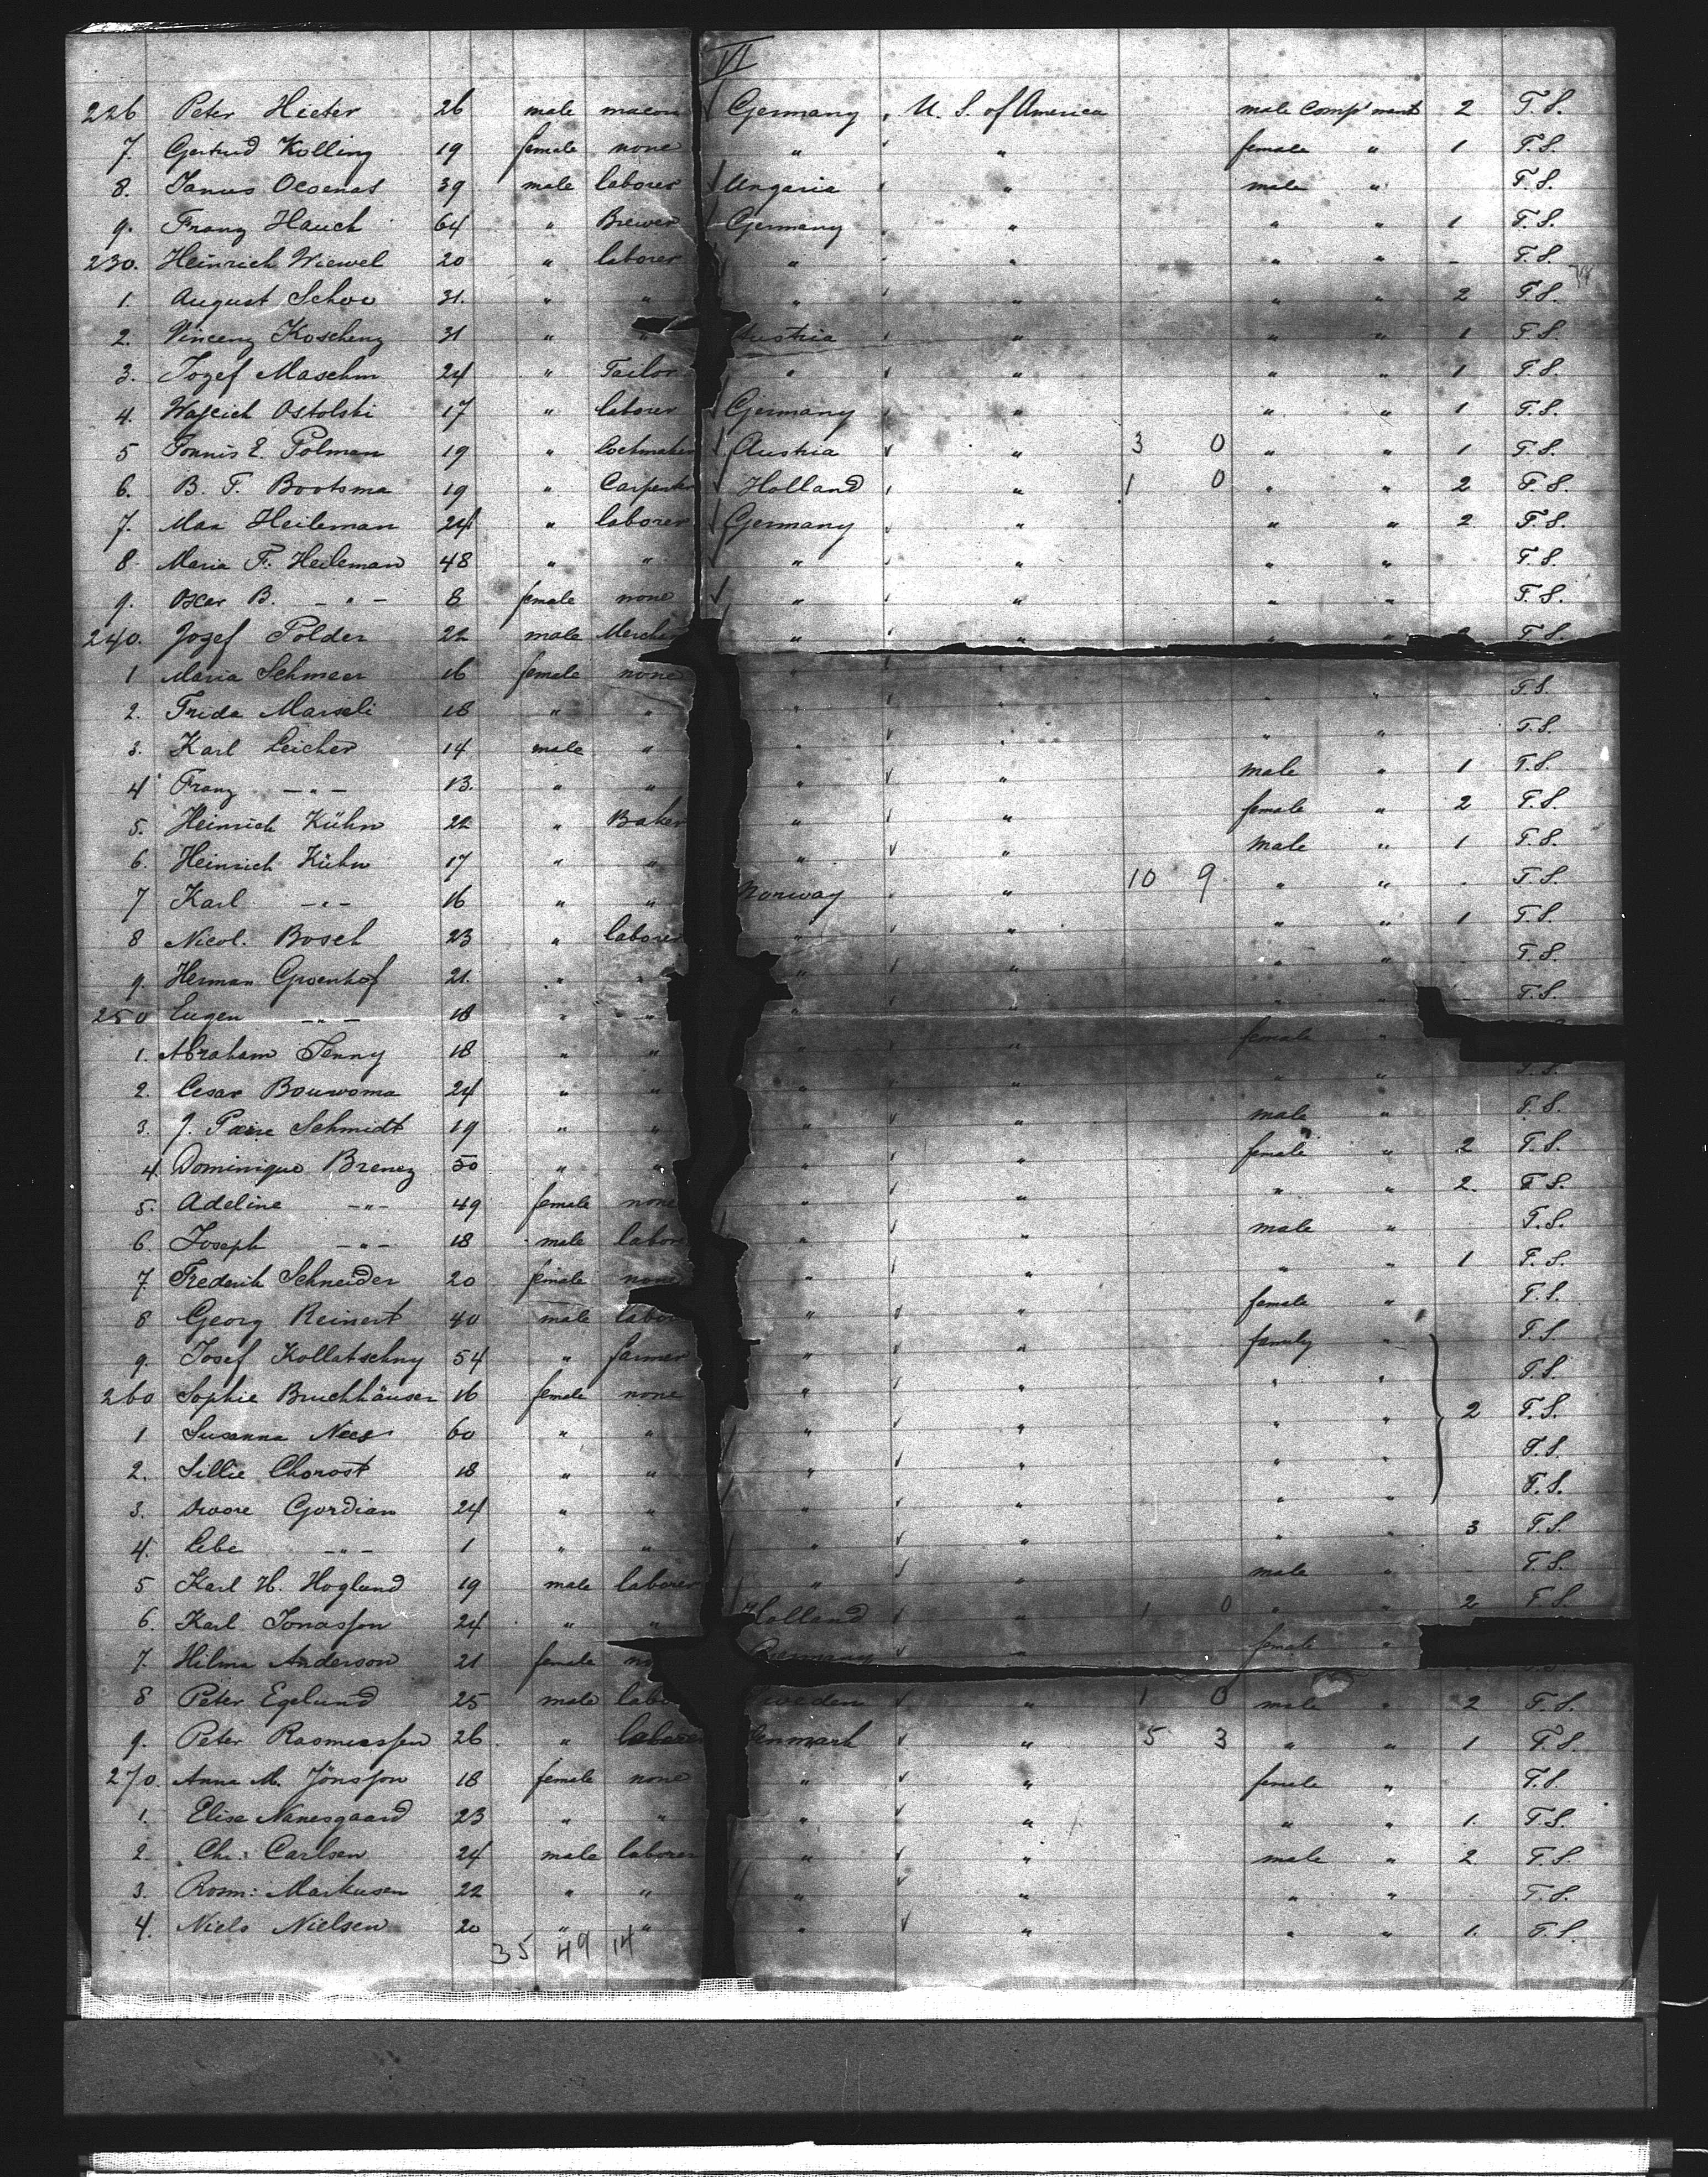 VI
226 Peter Hieter 26 male macon Germany U. S. of America male comp'ment 2 T.S.
7. Gertrud Kolling 19 female none " " female " 1 T.S.
8. Janus 39 male laborer Ungaria " male " T.S.
9. Franz Hauch 64 " Brewer Germany " " " 1 T.S.
230. Heinrich Wiewel 20 " laborer " " " " - T.S.
1. August Schoo 31. " " " " " " 2 T.S.
2. Vincenz Koscheny 31 " " Austria " " " 1 T.S.
3. Jozef Maschm 24 " Tailor " " " " 1 T.S.
4. Wajcich Ostolski 17 " laborer Germany " " " 1 T.S.
5 Tonnis E. Polman 19 " Lockmaker Austria " 3 0 " " 1 T.S.
6. B. T. Bootsma 19 " Carpenter Holland " 1 0 " " 2 T.S.
7. Max Heileman 24 " laborer Germany " " " 2 T.S.
8 Maria F. Heileman 48 " " " " " " T.S.
9. Oscar B. - " - 8 female none " " " " T.S.
240. Jozef Polder 22 male Merchan " " " " 2 T.S.
1 Maria Schmeer 16 female none " " " " T.S.
2. Frida Marseli 18 " " " " " " T.S.
3. Karl Leicher 14 male " " " male " 1 T.S.
4 Franz - " - 13. " " " " female " 2 T.S.
5. Heinrich Kühn 22 " Baker " " male " 1 T.S.
6. Heinrich Kühn 17 " " Norway " 10 9 " " - T.S.
7 Karl - " - 16 " " " " " " 1 T.S.
8 Nicol. Bosch 23 " laborer " " " " - T.S.
9. Herman Groenhof 21. " " " " " " - T.S.
250 Eugen - " - 18 " " " " female "
1. Abraham Jenny 18 " " " " " " T.S.
2. Cesar Bouwsma 24 " " " " male " T.S.
3. J. Paire Schmidt 19 " " " " female " 2 T.S.
4. Dominique Brenez 50 " " " " " " 2. T.S.
5. Adeline - " - 49 female none " " male " T.S.
6. Joseph - " - 18 male labor " " " " 1 T.S.
7. Frederik Schneider 20 female none " " female " T.S.
8 Georg Reinert 40 male labor " " family " T.S.
9. Josef Kollatschny 54 " farmer " " " " T.S.
260 Sophie Bruchhäuser 16 female none " " " " 2 T.S.
1 Susanna Nees 60 " " " " " " T.S.
2. Lillie Chorost 18 " " " " " " T.S.
3. Dwore Gordian 24 " " " " " " 3 T.S.
4. Lebe - " - 1 " " " " male " - T.S.
5 Karl H. Hoglund 19 male laborer Holland " 1 0 " " 2 T.S.
6. Karl Jonasson 24 " " Germany " female "
7. Hilma Anderson 21 female no
8 Peter Egelund 25 male labo Sweden " 1 0 male " 2 T.S.
9. Peter Rasmussen 26 " laborer Denmark " 5 3 " " 1 T.S.
270. Anna M. Jönsson 18 female none " " female " T.S.
1. Elise Nanesgaard 23 " " " " " " 1. T.S.
2. Chr: Carlsen 24 male laborer " " male " 2 T.S.
3. Rasm: Markusen 22 " " " " " " T.S.
4. Niels Nielsen 20 " " " " " " 1. T.S.
35 49 14